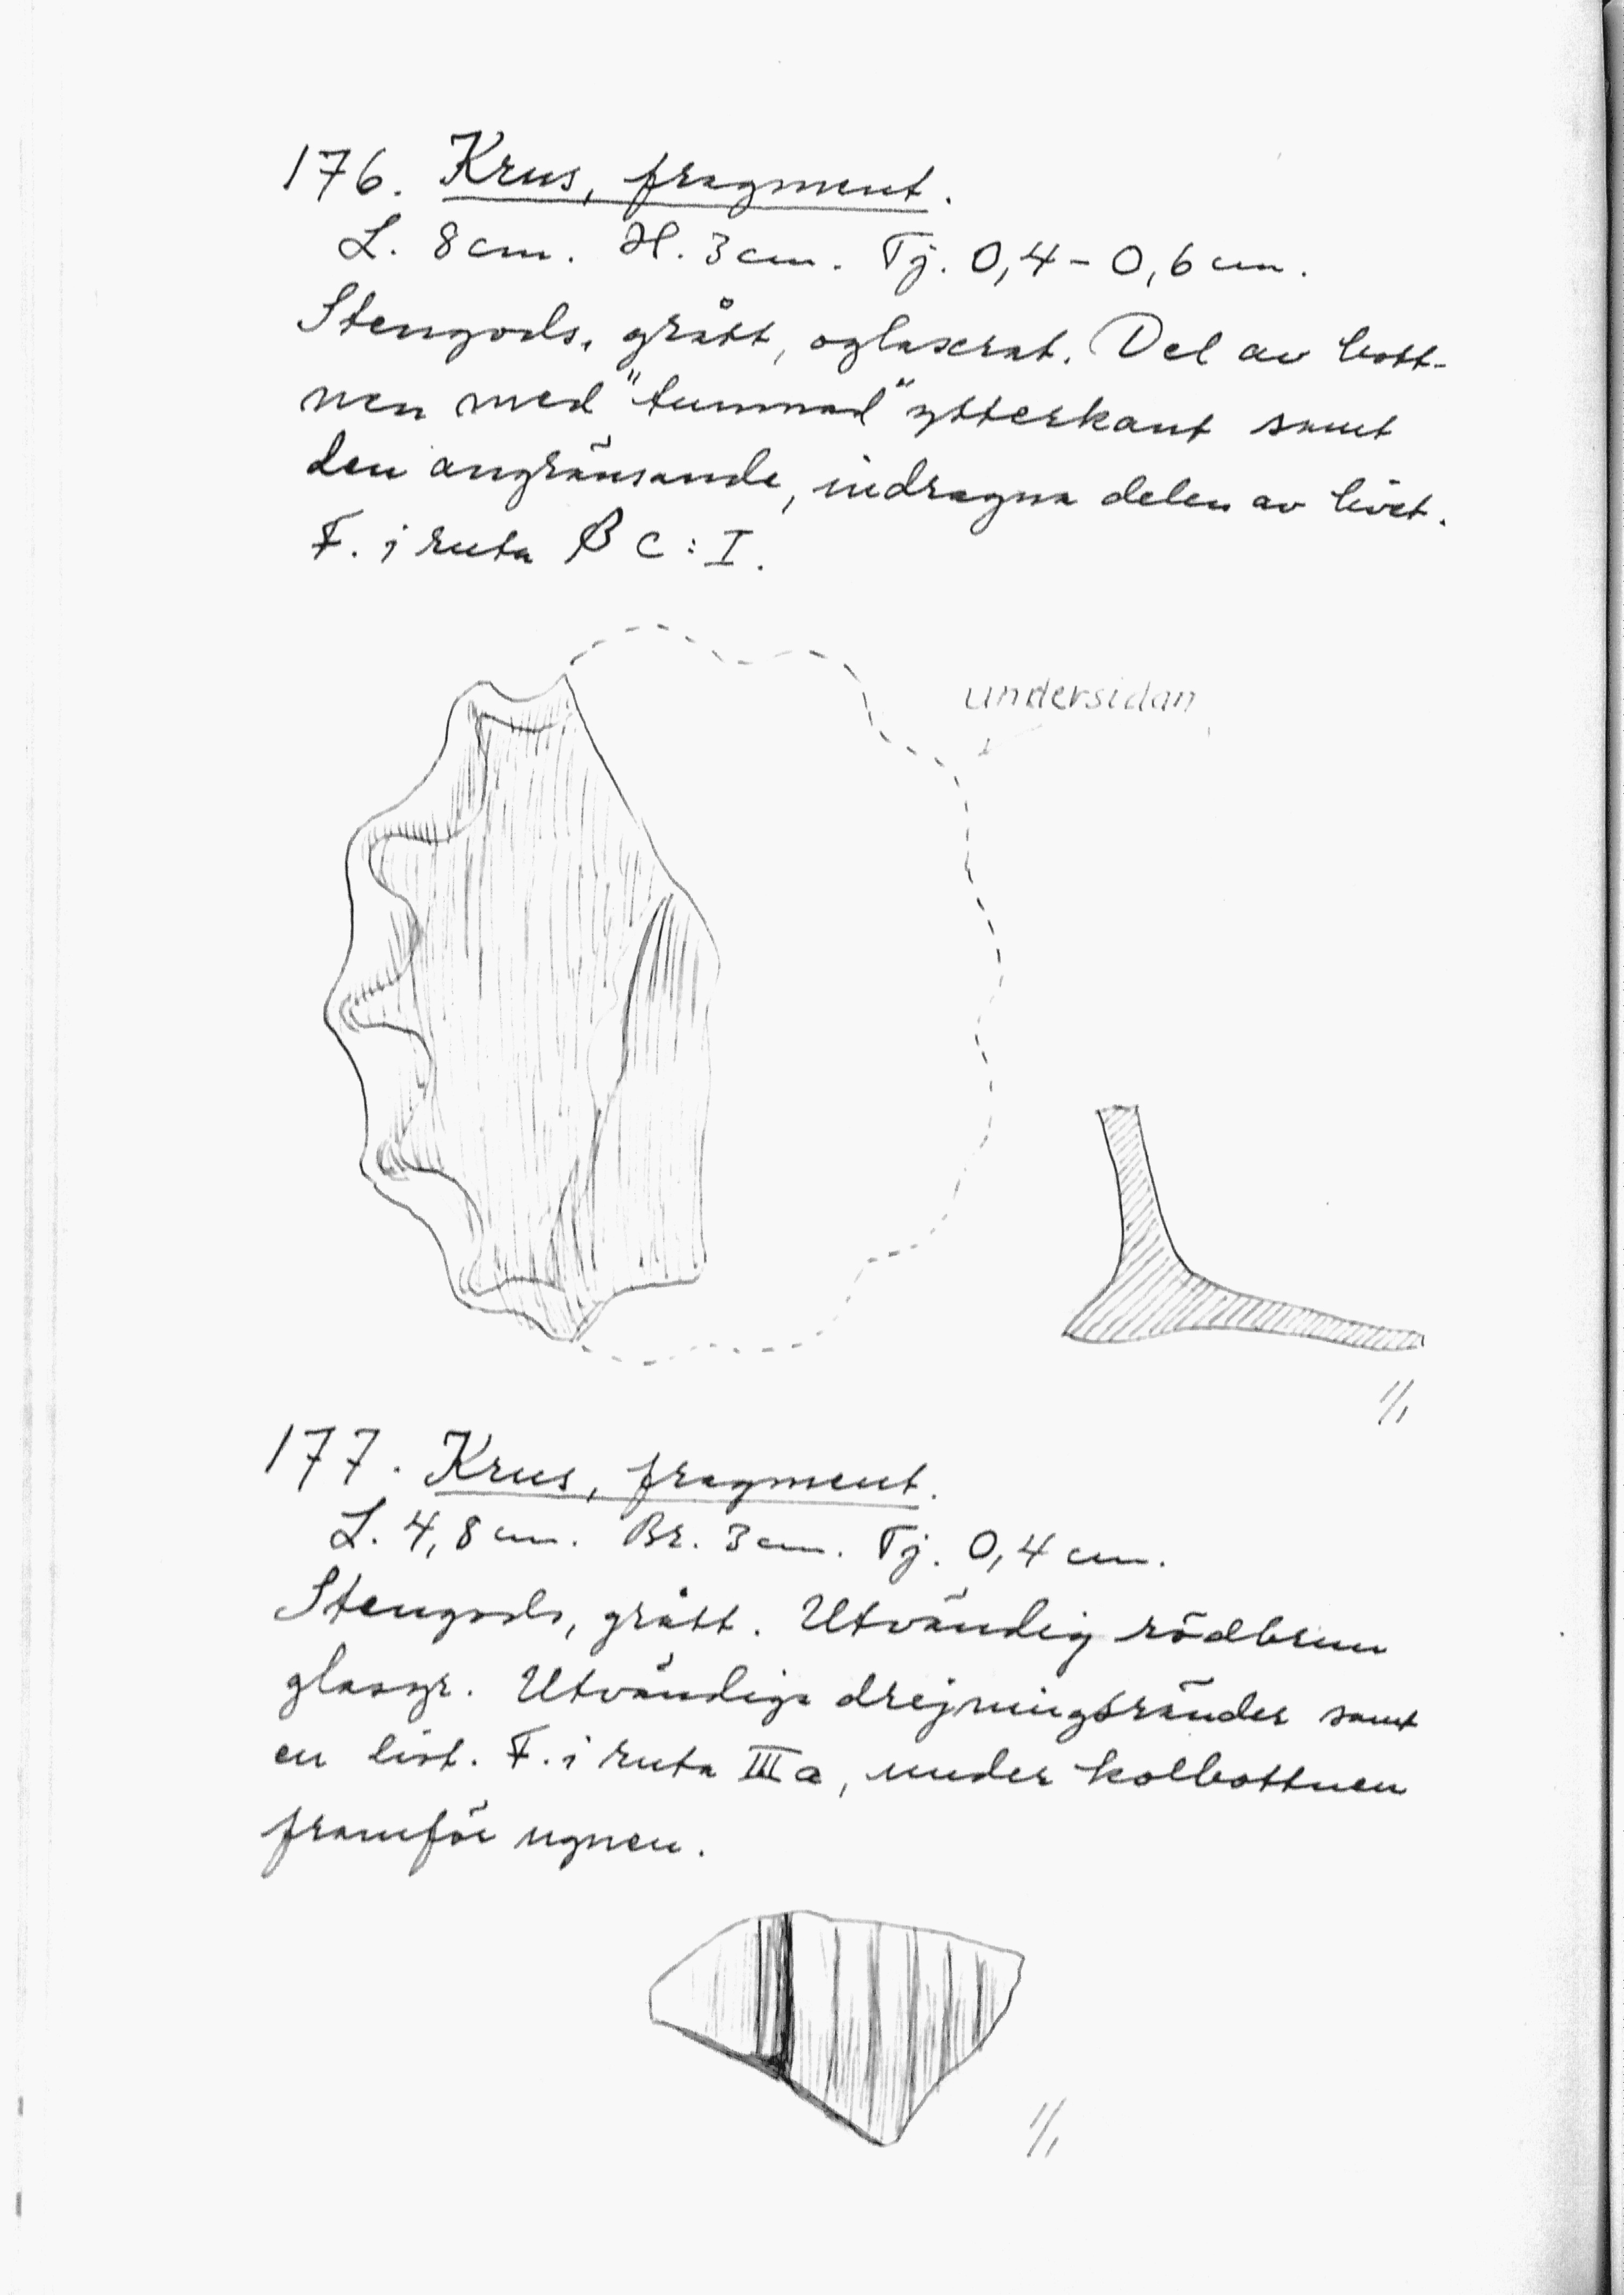 176. Krus, fragment.
L. 8 cm. H. 3 cm. Tj. 0,4 - 0,6 cm.
Stengods, grått, oglaserat. Del av bott-
nen med "tummad" ytterkant samt
den angränsande, indragna delen av livet.
F. i ruta β C : I.
undersidan
1/1
177. Krus, fragment.
L. 4,8 cm. Br. 3 cm. Tj. 0,4 cm.
Stengods, grått. Utvändig rödbrun
glasyr. Utvändiga drejningsränder samt
en list. F. i ruta III a, under kolbottnen
framför ugnen.
1/1